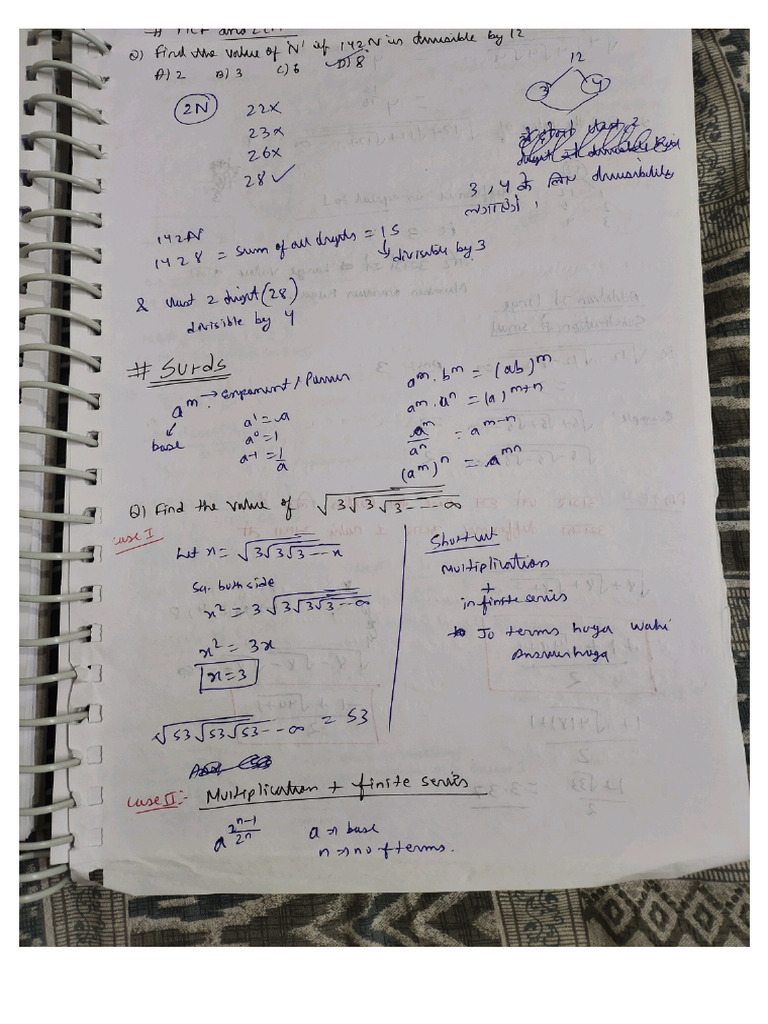 # HCF and LCM
Q) Find the value of 'N' if 142N is divisible by 12
A) 2 B) 3 C) 6 D) 8
2N
22x
23x
26x
28✓
12
3 4
3, 4 के लिए divisibility
लगाएंगे।
142N
1428 = sum of all digits = 15
↳ divisible by 3
& last 2 digit (28)
divisible by 4
# Surds
a^m → Exponent / Power
base
a¹ = a
a⁰ = 1
a-1 = 1/a
a^m . b^m = (ab)^m
a^m . a^n = (a)^m+n
a^m/a^n = a^m-n
(a^m)^n = a^mn
Q) Find the value of √3√3√3---∞
case I
Let x = √3√3√3---x
Sq. both side
x² = 3√3√3√3--∞
x² = 3x
x = 3
√53√53√53--∞ = 53
Shortcut
Multiplication
+
infinite series
Jo terms hoga wahi
Answer hoga
Case II:- Multiplication + finite series
a^(2^n-1/2^n)
a => base
n => no of terms.